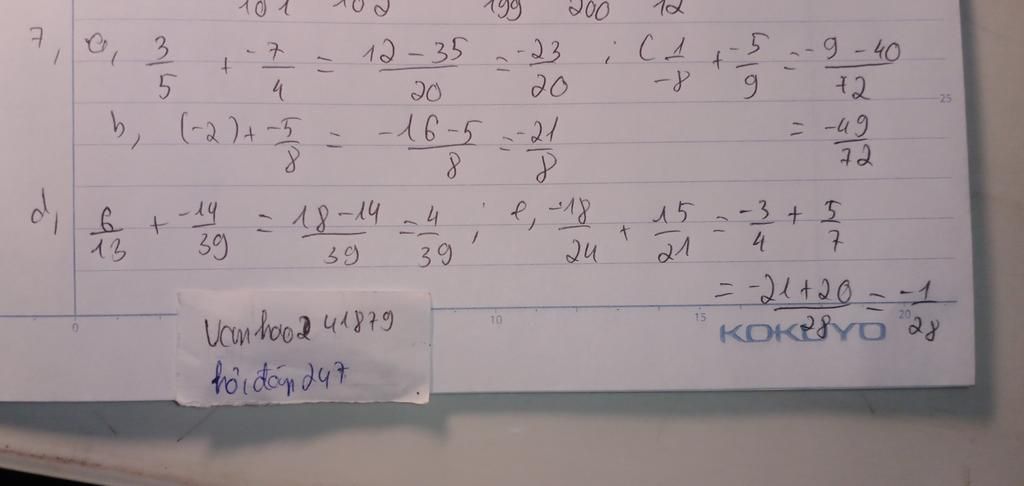 101 102 199 200 12
7, a, 3/5 + -7/4 = 12-35/20 = -23/20 ; ( 1/-8 + -5/9 = -9-40/72
25
b, (-2) + -5/8 = -16-5/8 = -21/8 = -49/72
d, 6/13 + -14/39 = 18-14/39 = 4/39 ; e, -18/24 + 15/21 = -3/4 + 5/7
= -21+20/28 = -1/28
0 10 15 20
KOKUYO
vanhao241879
hỏi đáp 247